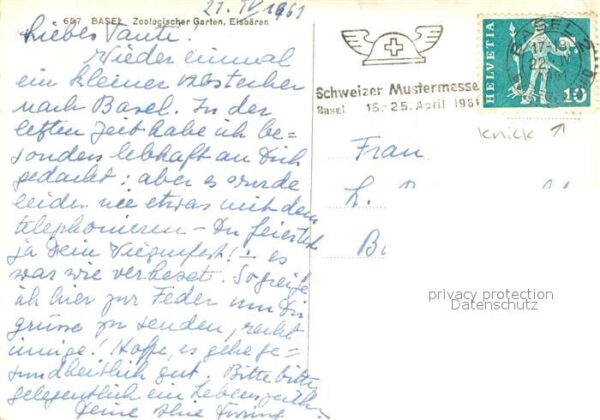 657 BASEL Zoologischer Garten, Eisbären
21. IV 1961
Liebes Tanti!
Wieder einmal
ein kleiner Abstecher
nach Basel. In der
letzten Zeit habe ich be=
sonders lebhaft an Dich
gedacht; aber es wurde
leider nie etwas mit dem
telephonieren - Du feiertest
ja Dein Wiegenfest! - es
war wie verhext. So greife
ich hier zur Feder um Dir
grüsse zu senden, recht
innige! Hoffe, es gehe ge=
sundheitlich gut. Bitte bitte
gelegentlich ein Lebenszeichen
Deine
Schweizer Mustermesse
Basel 15.-25. April 1961
BASEL 2
17
22
HELVETIA
10
Knick ↗
Frau
L.
B
privacy protection
Datenschutz